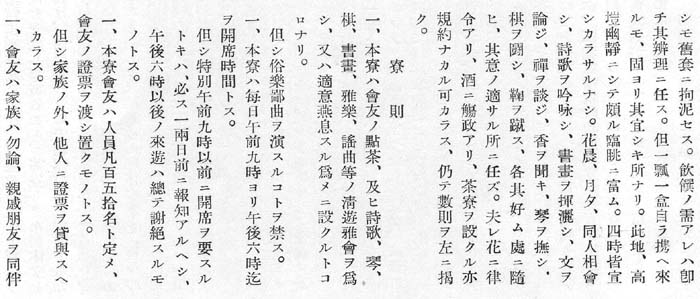 シモ舊套ニ拘泥セス。飲饌ノ需アレハ卽
チ其辨理ニ任ス。但一瓢一盒自ラ携ヘ來
ルモ、固ヨリ其宜シキ所ナリ。此地、高
塏幽靜ニシテ頗ル臨眺ニ富ム。四時皆宜
シカラサルナシ。花晨、月夕、同人相會
シ、詩歌ヲ吟咏シ、書畫ヲ揮灑シ、文ヲ
論ジ、禪ヲ談ジ、香ヲ聞キ、琴ヲ撫シ、
棋ヲ鬪シ、鞠ヲ蹴ス、各其好ム處ニ隨
ヒ、其意ノ適サル所ニ任ズ。夫レ花ニ律
令アリ、酒ニ觴政アリ、茶寮ヲ設クル亦
規約ナカル可カラス、仍テ數則ヲ左ニ揭
ク。
寮則
一、本寮ハ會友ノ點茶、及ヒ詩歌、琴、
棋、書畫、雅樂、謠曲等ノ淸遊雅會ヲ爲
シ、又ハ適意燕息スル爲メニ設クルトコ
ロナリ。
但シ俗樂鄙曲ヲ演スルコトヲ禁ス。
一、本寮ハ每日午前九時ヨリ午後六時迄
ヲ開席時間トス。
但シ特別午前九時以前ニ開席ヲ要スル
トキハ、必ス一兩日前ニ報知アルヘシ、
午後六時以後ノ來遊ハ總テ謝絕スルモ
ノトス。
一、本寮會友ハ人員凡百五拾名ト定メ、
會友ノ證票ヲ渡シ置クモノトス。
但シ家族ノ外、他人ニ證票ヲ貸與スヘ
カラス。
一、會友ハ家族ハ勿論、親戚朋友ヲ同伴